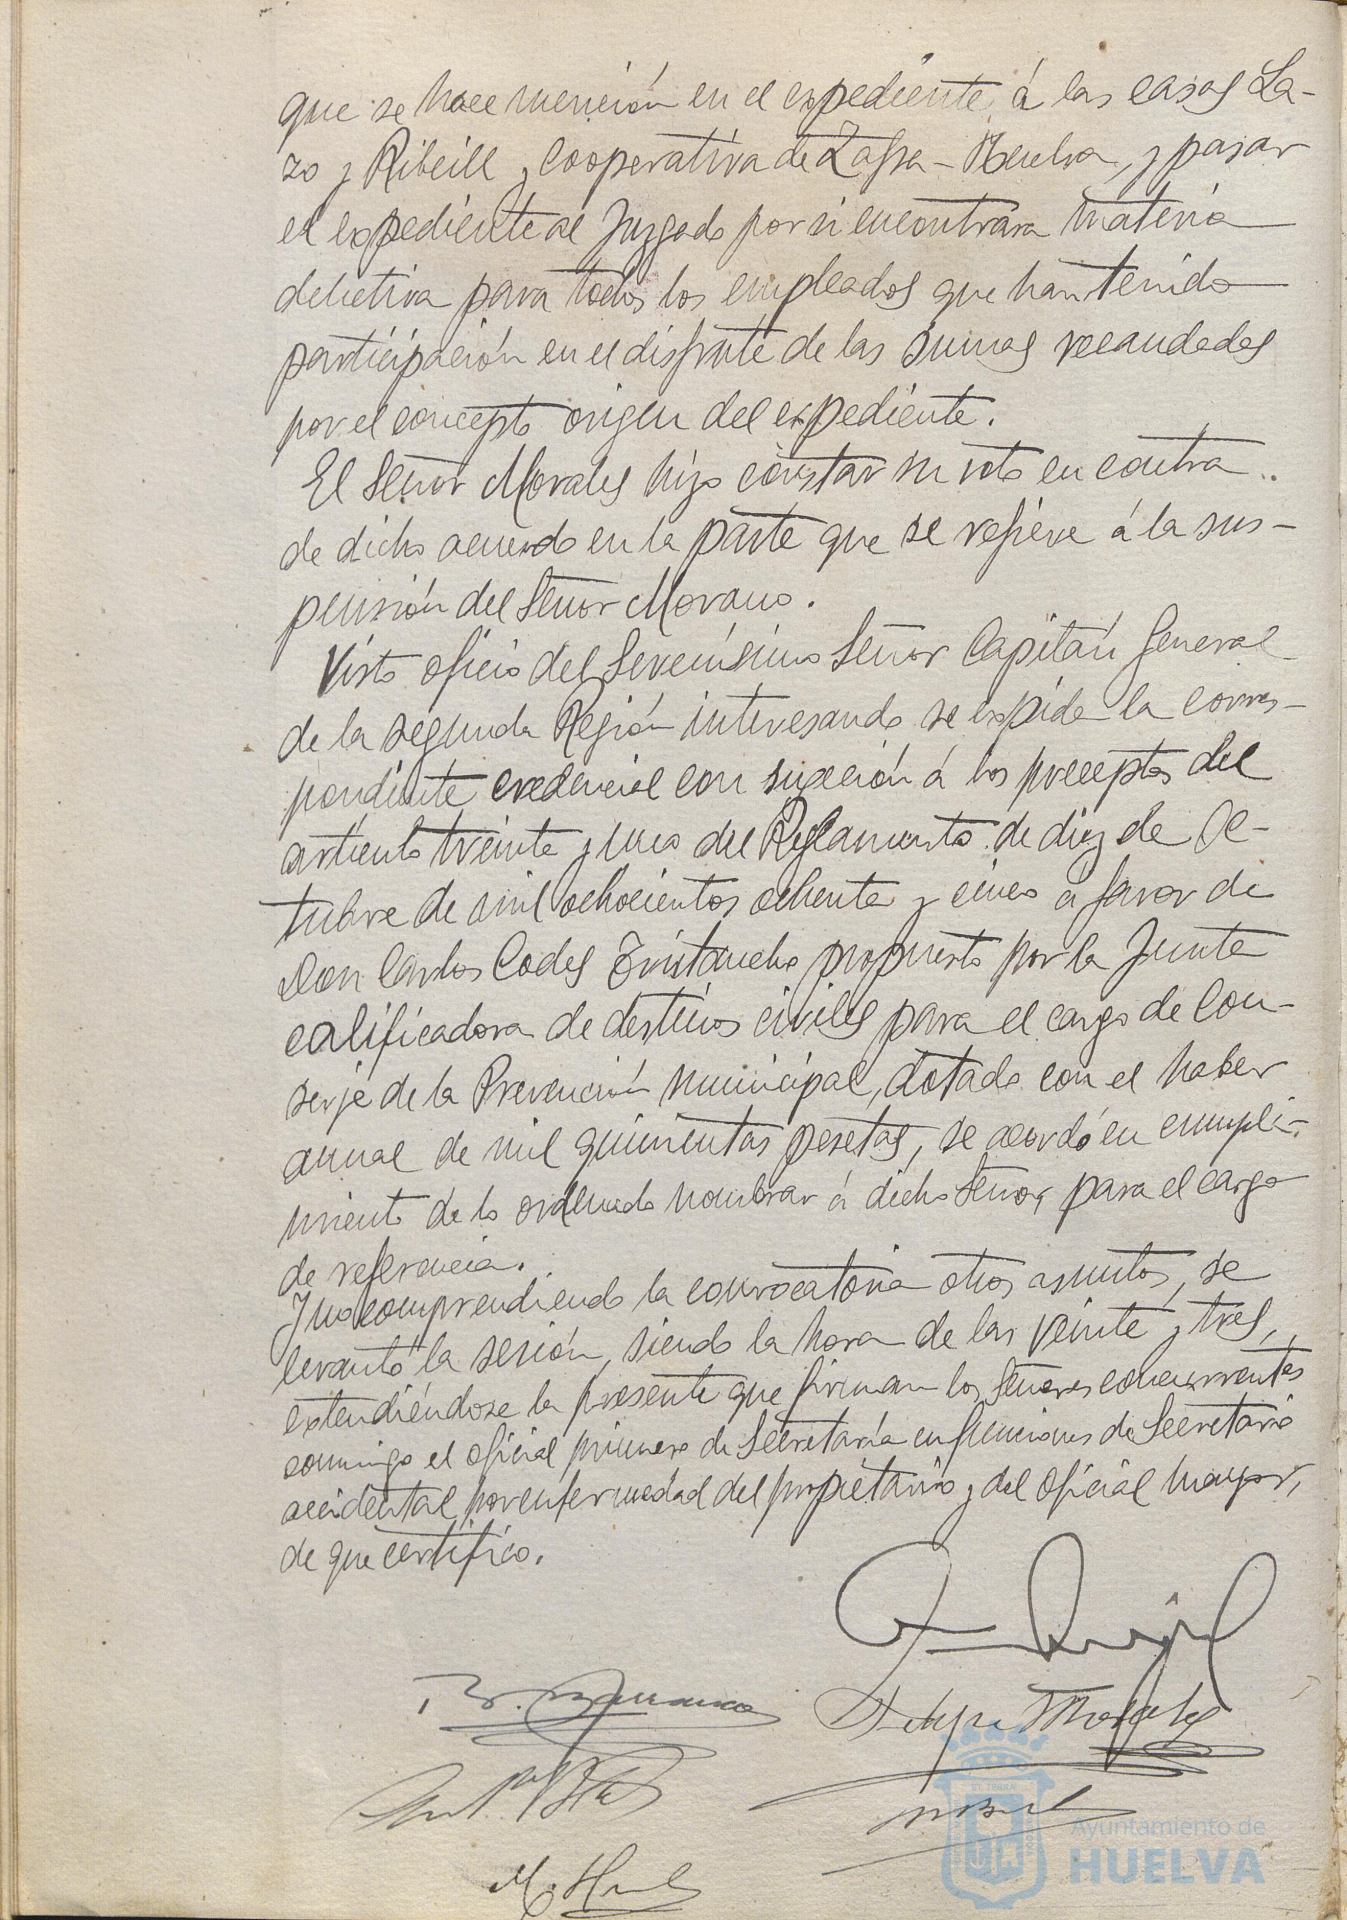 que se hace mención en el expediente á las casas La-
zo y Ribeill y Cooperativa de Zafra-Huelva, y pasar
el expediente al Juzgado por si encontrara materia
delictiva para todos los empleados que han tenido
participación en el disfrute de las sumas recaudadas
por el concepto origen del expediente.
El Señor Morales hizo constar su voto en contra
de dicho acuerdo en la parte que se refiere á la sus-
pensión del Señor Morano.
Visto oficio del Serenísimo Señor Capitán General
de la segunda Región interesando se expida la corres-
pondiente credencial con sujeción á los preceptos del
artículo treinta y uno del Reglamento de diez de Oc-
tubre de mil ochocientos ochenta y cinco á favor de
Don Carlos Codes propuesto por la Junta
calificadora de destinos civiles para el cargo de Con-
serje de la Prevención municipal, dotado con el haber
anual de mil quinientas pesetas, se acordó en cumpli-
miento de lo ordenado nombrar á dicho Señor, para el cargo
de referencia.
Y no comprendiendo la convocatoria otros asuntos, se
levantó la sesión, siendo la hora de las veinte y tres,
extendiéndose la presente que firman los Señores concurrentes
conmigo el oficial primero de Secretaría en funciones de Secretario
accidental por enfermedad del propietario y del oficial mayor,
de que certifico.
Felipe Morales
Ayuntamiento de
HUELVA